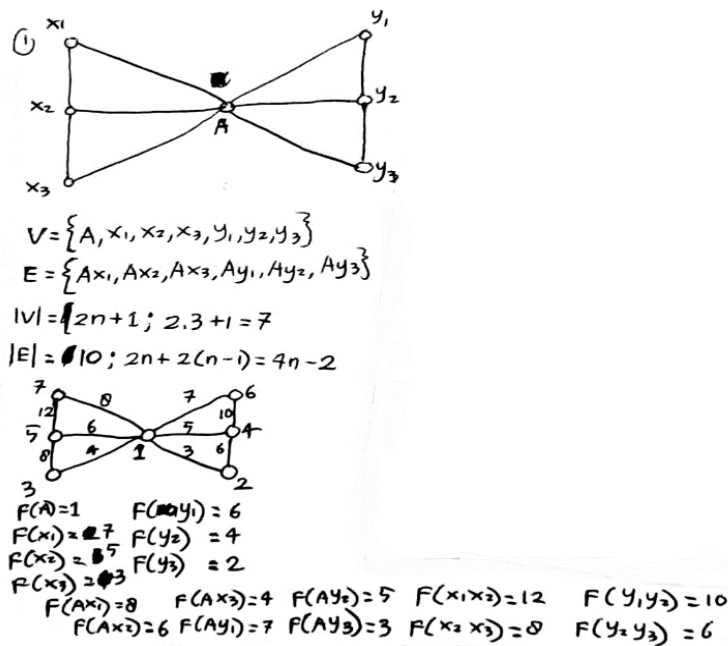 ①
x1 y1
x2 A y2
x3 y3
V={A,x1,x2,x3,y1,y2,y3}
E={Ax1,Ax2,Ax3,Ay1,Ay2,Ay3}
|V|=2n+1; 2.3+1=7
|E|=10; 2n+2(n-1)=4n-2
7 8 7 6
12 10
5 6 1 5 4
8 4 3 6
3 2
F(A)=1 F(y1)=6
F(x1)=7 F(y2)=4
F(x2)=5 F(y3)=2
F(x3)=3
F(Ax1)=8 F(Ax3)=4 F(Ay2)=5 F(x1x2)=12 F(y1y2)=10
F(Ax2)=6 F(Ay1)=7 F(Ay3)=3 F(x2x3)=8 F(y2y3)=6